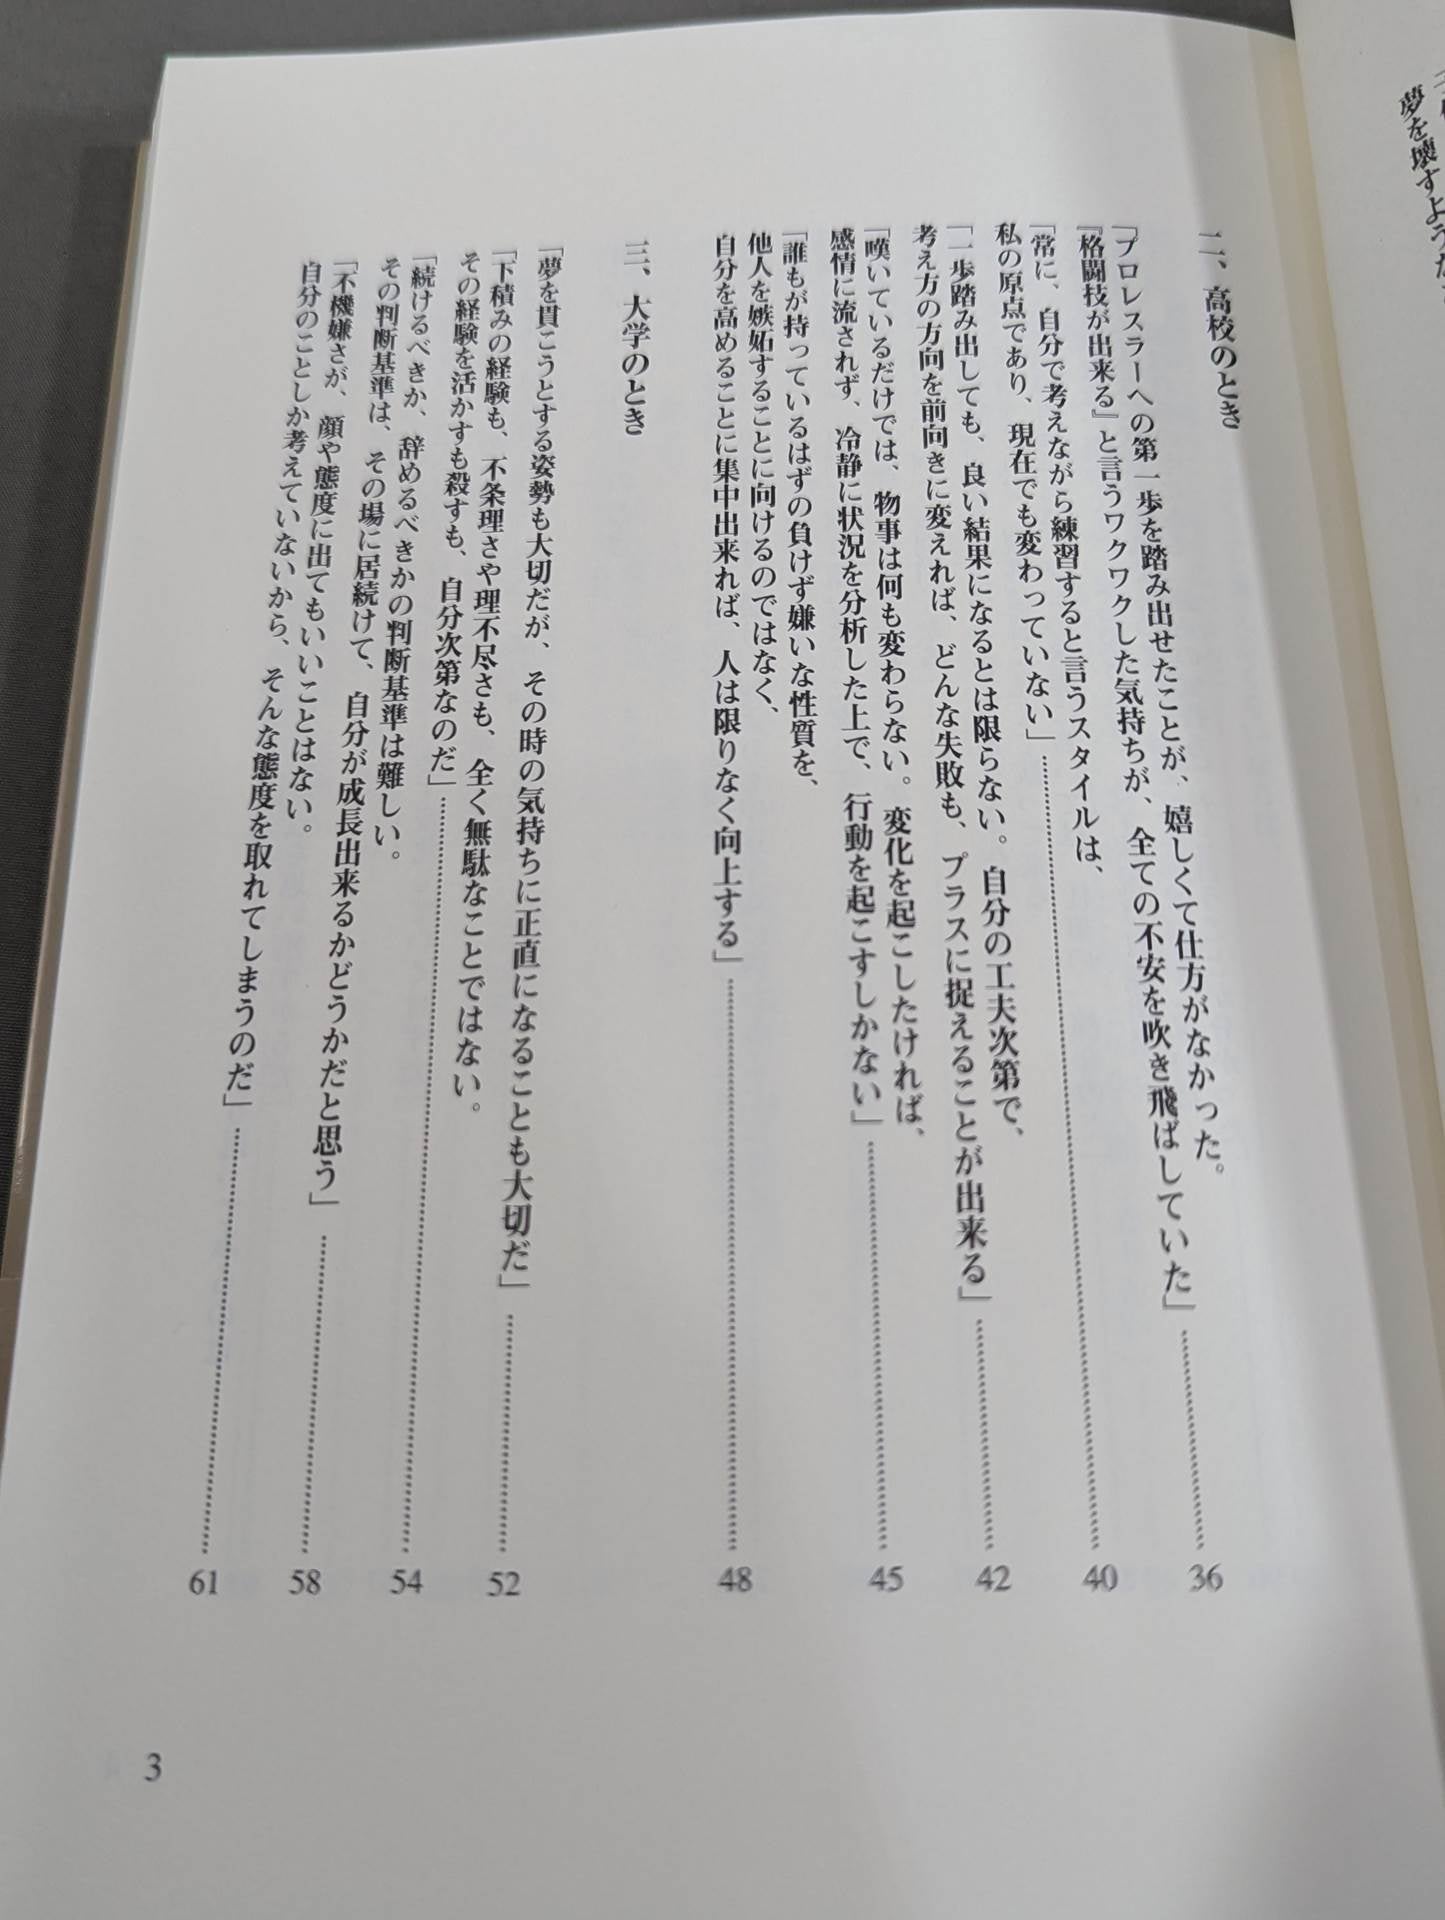 夢を壊すような
二、高校のとき
「プロレスラーへの第一歩を踏み出せたことが、嬉しくて仕方がなかった。
『格闘技が出来る』と言うワクワクした気持ちが、全ての不安を吹き飛ばしていた」………36
「常に、自分で考えながら練習すると言うスタイルは、
私の原点であり、現在でも変わっていない」………40
「一歩踏み出しても、良い結果になるとは限らない。自分の工夫次第で、
考え方の方向を前向きに変えれば、どんな失敗も、プラスに捉えることが出来る」………42
「嘆いているだけでは、物事は何も変わらない。変化を起こしたければ、
感情に流されず、冷静に状況を分析した上で、行動を起こすしかない」………45
「誰もが持っているはずの負けず嫌いな性質を、
他人を嫉妬することに向けるのではなく、
自分を高めることに集中出来れば、人は限りなく向上する」………48
三、大学のとき
「夢を貫こうとする姿勢も大切だが、その時の気持ちに正直になることも大切だ」………52
「下積みの経験も、不条理さや理不尽さも、全く無駄なことではない。
その経験を活かすも殺すも、自分次第なのだ」………54
「続けるべきか、辞めるべきかの判断基準は難しい。
その判断基準は、その場に居続けて、自分が成長出来るかどうかだと思う」………58
「不機嫌さが、顔や態度に出てもいいことはない。
自分のことしか考えていないから、そんな態度を取れてしまうのだ」………61
3